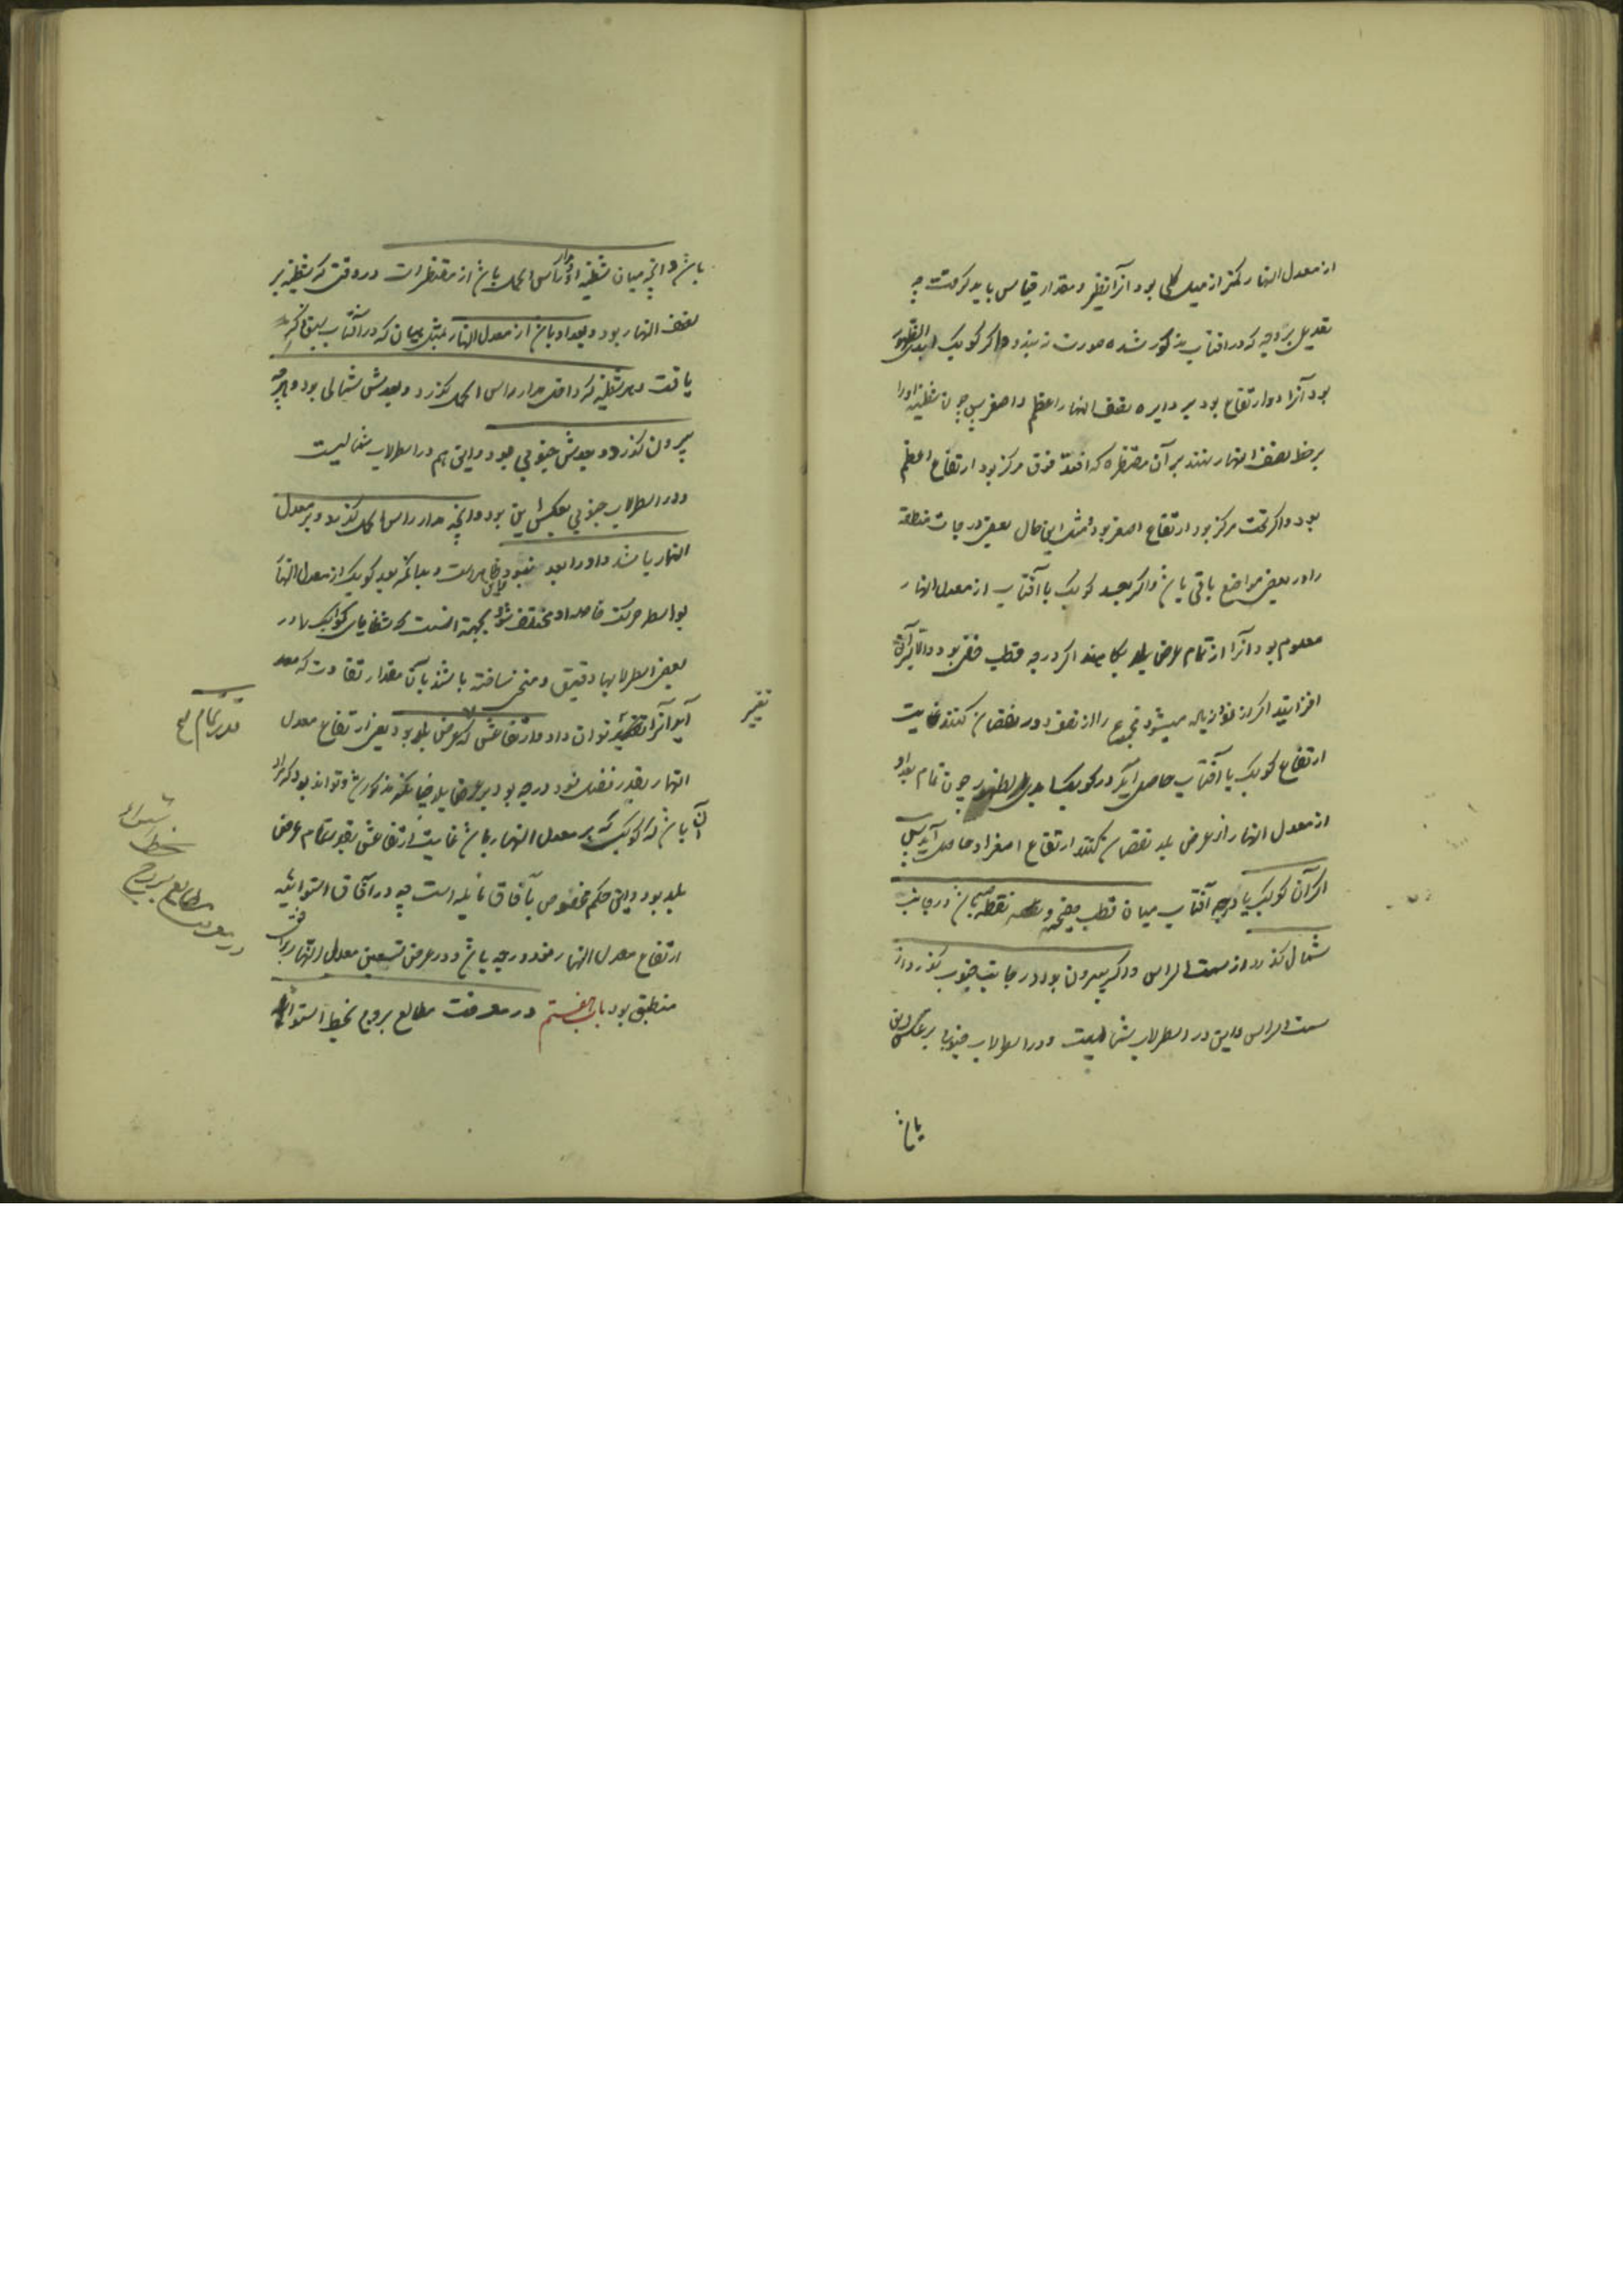 از معدل النهار کمتر از میل کلی بود آنرا نظیر و مقدار قیاس باید گرفت چه
تعدیل بر وجه که در افتاب مذکور شده صورت نه بندد و اگر کوکب ابدی الظهور
بود آنرا دو ارتفاع بود بر دایره نصف النهار اعظم و اصغر پس چون شظیه او را
بر خط نصف النهار نهند بر آن مقنطره که افتد فوق مرکز بود ارتفاع اعظم
بود و اگر تحت مرکز بود ارتفاع اصغر بود و مثل این حال بعضی درجات منطقه
را در بعضی مواضع باقی باشد و اگر بعد کوکب یا آفتاب از معدل النهار
معلوم بود آنرا از تمام عرض بلد بکاهند اگر در جهه قطب خفی بود و الا بر آن
افزایند اگر از نود زیاده میشود مجموع را از نصف دور نقصان کنند غایت
ارتفاع کوکب یا آفتاب حاصل آید و در کوکب ابدی الظهور چون تمام بعد او
از معدل النهار از عرض بلد نقصان کنند ارتفاع اصغر او حاصل آید پس
اگر آن کوکب یا درجه آفتاب میان قطب صفیحه و نقطه باشد در جانب
شمال گذرد از سمت الراس و اگر بیرون بود در جانب جنوب گذرد از
سمت الراس و این در اسطرلاب شمالیست و در اسطرلاب جنوبی بر عکس این
باشد
باشد و آنچه میان شظیه او و مدار راس الحمل باشد از مقنطرات در وقتی که شظیه بر
نصف النهار بود و بعد او باشد از معدل النهار بمثل بیان که در آفتاب سبق ذکر
یافت و هر شظیه که داخل مدار راس الحمل گذرد و بعدش شمالی بود و هرچه
بیرون گذرد و بعدش جنوبی بود و این هم در اسطرلاب شمالیست
و در اسطرلاب جنوبی بعکس این بود و آنچه مدار راس الحمل گذرد و بر معدل
النهار باشد و او را بعد نبود و ظاهر است و بدانکه بعد کوکب از معدل النهار
بواسطه حرکت خاصه او مختلف شود بجهة آنست که شظایای کواکب در
بعضی اسطرلابها دقیق و منحنی ساخته باشند بآن مقدار تفاوت که
آید آنرا تغییر توان داد و ارتفاعش که عرض بلد بود یعنی ارتفاع معدل
تغییر
بقدر تمام
النهار بقدر فضل نود درجه بود بر عرض بلد چنانکه مذکور شد و تواند بود که مراد
آن باشد که کوکب که بر معدل النهار باشد غایت ارتفاعش بقدر تمام عرض
بلد بود و این حکم مخصوص بآفاق مایله است چه در آفاق استوائیه
ارتفاع معدل النهار نود درجه باشد و در عرض تسعین معدل النهار بر افق
منطبق بود باب هشتم در معرفت مطالع بروج بخط استوا
در معرفت
مطالع بروج
بخط
استواء